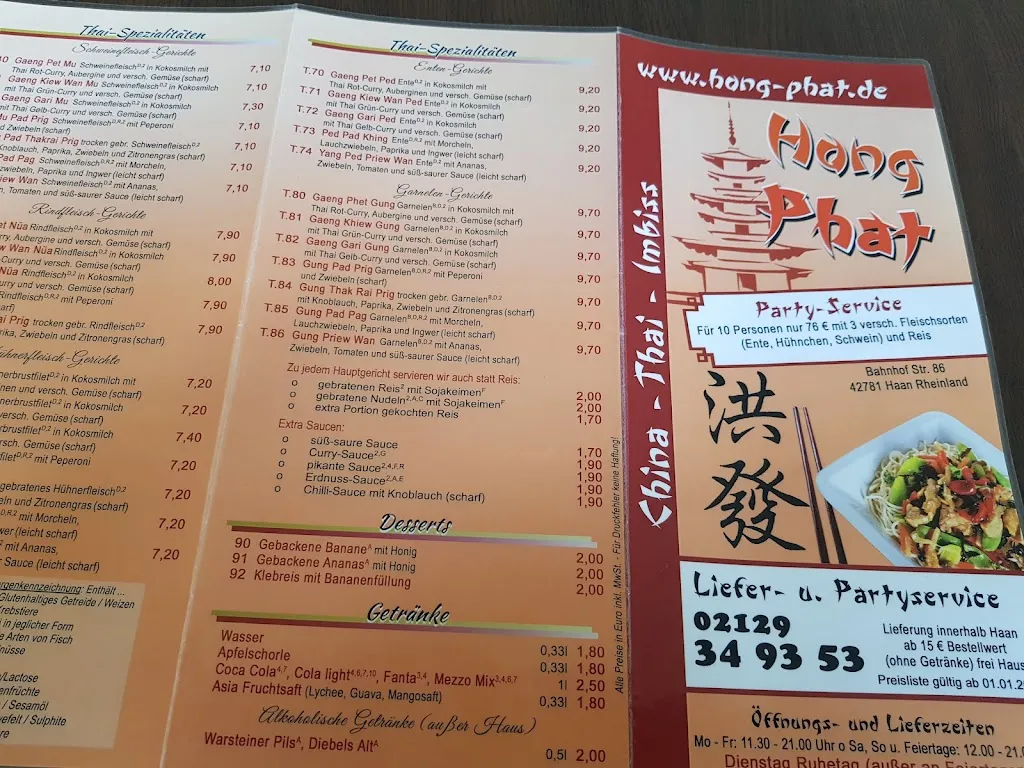 Thai-Spezialitäten
Schweinefleisch-Gerichte
Gaeng Pet Mu Schweinefleisch D,2 in Kokosmilch mit
Thai Rot-Curry, Aubergine und versch. Gemüse (scharf) 7,10
Gaeng Kiew Wan Mu Schweinefleisch D,2 in Kokosmilch
mit Thai Grün-Curry und versch. Gemüse (scharf) 7,10
Gaeng Gari Mu Schweinefleisch D,2 in Kokosmilch
mit Thai Gelb-Curry und versch. Gemüse (scharf) 7,30
Pad Prig Schweinefleisch D,R,2 mit Peperoni
und Zwiebeln (scharf) 7,10
Pad Thakrai Prig trocken gebr. Schweinefleisch D,2
Knoblauch, Paprika, Zwiebeln und Zitronengras (scharf) 7,10
Pad Pag Schweinefleisch D,R,2 mit Morcheln,
Paprika und Ingwer (leicht scharf) 7,10
Priew Wan Schweinefleisch D,2 mit Ananas,
Tomaten und süß-saurer Sauce (leicht scharf) 7,10
Rindfleisch-Gerichte
Nüa Rindfleisch D,2 in Kokosmilch mit
Curry, Aubergine und versch. Gemüse (scharf) 7,90
Wan Nüa Rindfleisch D,2 in Kokosmilch
Curry und versch. Gemüse (scharf) 7,90
Nüa Rindfleisch D,2 in Kokosmilch
Curry und versch. Gemüse (scharf) 8,00
Rindfleisch D,R,2 mit Peperoni
7,90
Prig trocken gebr. Rindfleisch D,2
Paprika, Zwiebeln und Zitronengras (scharf) 7,90
Hühnerfleisch-Gerichte
in Kokosmilch mit
und versch. Gemüse (scharf) 7,20
in Kokosmilch
versch. Gemüse (scharf) 7,20
in Kokosmilch
Gemüse (scharf) 7,40
mit Peperoni
7,20
gebratenes Hühnerfleisch D,2
und Zitronengras (scharf) 7,20
mit Morcheln,
(leicht scharf) 7,20
mit Ananas,
Sauce (leicht scharf) 7,20
Enthält ...
Glutenhaltiges Getreide / Weizen
Krebstiere
in jeglicher Form
Arten von Fisch
/Lactose
/ Sesamöl
/ Sulphite
Thai-Spezialitäten
Enten-Gerichte
T.70 Gaeng Pet Ped Ente D,2 in Kokosmilch mit
Thai Rot-Curry, Auberginen und versch. Gemüse (scharf) 9,20
T.71 Gaeng Kiew Wan Ped Ente D,2 in Kokosmilch
mit Thai Grün-Curry und versch. Gemüse (scharf) 9,20
T.72 Gaeng Gari Ped Ente D,2 in Kokosmilch
mit Thai Gelb-Curry und versch. Gemüse (scharf) 9,20
T.73 Ped Pad Khing Ente D,R,2 mit Morcheln,
Lauchzwiebeln, Paprika und Ingwer (leicht scharf) 9,20
T.74 Yang Ped Priew Wan Ente D,2 mit Ananas,
Zwiebeln, Tomaten und süß-saurer Sauce (leicht scharf) 9,20
Garnelen-Gerichte
T.80 Gaeng Phet Gung Garnelen B,D,2 in Kokosmilch mit
Thai Rot-Curry, Aubergine und versch. Gemüse (scharf) 9,70
T.81 Gaeng Khiew Gung Garnelen B,D,2 in Kokosmilch
mit Thai Grün-Curry und versch. Gemüse (scharf) 9,70
T.82 Gaeng Gari Gung Garnelen B,D,2 in Kokosmilch
mit Thai Gelb-Curry und versch. Gemüse (scharf) 9,70
T.83 Gung Pad Prig Garnelen B,D,R,2 mit Peperoni
und Zwiebeln (scharf) 9,70
T.84 Gung Thak Rai Prig trocken gebr. Garnelen B,D,2
mit Knoblauch, Paprika, Zwiebeln und Zitronengras (scharf) 9,70
T.85 Gung Pad Pag Garnelen B,D,R,2 mit Morcheln,
Lauchzwiebeln, Paprika und Ingwer (leicht scharf) 9,70
T.86 Gung Priew Wan Garnelen B,D,2 mit Ananas,
Zwiebeln, Tomaten und süß-saurer Sauce (leicht scharf) 9,70
Zu jedem Hauptgericht servieren wir auch statt Reis:
o gebratenen Reis 2 mit Sojakeimen F 2,00
o gebratene Nudeln 2,A,C mit Sojakeimen F 2,00
o extra Portion gekochten Reis 1,70
Extra Saucen:
o süß-saure Sauce 1,70
o Curry-Sauce 2,G 1,90
o pikante Sauce 2,4,F,R 1,90
o Erdnuss-Sauce 2,A,E 1,90
o Chilli-Sauce mit Knoblauch (scharf) 1,90
Desserts
90 Gebackene Banane A mit Honig 2,00
91 Gebackene Ananas A mit Honig 2,00
92 Klebreis mit Bananenfüllung 2,00
Getränke
Wasser 0,33l 1,80
Apfelschorle 0,33l 1,80
Coca Cola 4,7, Cola light 4,6,7,10, Fanta 3,4, Mezzo Mix 3,4,6,7 1l 2,50
Asia Fruchtsaft (Lychee, Guava, Mangosaft) 0,33l 1,80
Alkoholische Getränke (außer Haus)
Warsteiner Pils A, Diebels Alt A 0,5l 2,00
Alle Preise in Euro inkl. MwSt. - Für Druckfehler keine Haftung!
China - Thai - Imbiss
www.hong-phat.de
Hong
Phat
Party-Service
Für 10 Personen nur 76 € mit 3 versch. Fleischsorten
(Ente, Hühnchen, Schwein) und Reis
Bahnhof Str. 86
42781 Haan Rheinland
洪
發
Liefer- u. Partyservice
02129
34 93 53
Lieferung innerhalb Haan
ab 15 € Bestellwert
(ohne Getränke) frei Haus
Preisliste gültig ab 01.01.
Öffnungs- und Lieferzeiten
Mo - Fr: 11.30 - 21.00 Uhr o Sa, So u. Feiertage: 12.00 - 21.
Dienstag Ruhetag (außer an Feiertagen